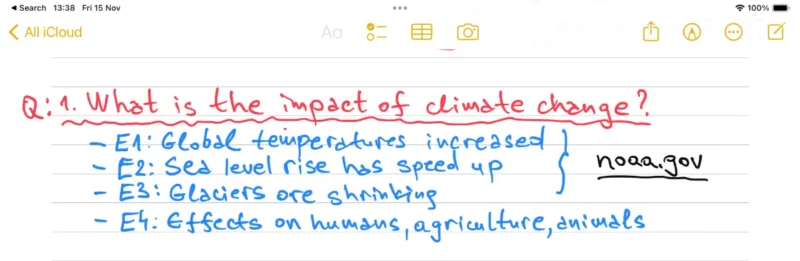 Search 13:38 Fri 15 Nov 100%
All iCloud Aa
Q: 1. What is the impact of climate change?
- E1: Global temperatures increased
- E2: Sea level rise has speed up
noaa.gov
- E3: Glaciers are shrinking
- E4: Effects on humans, agriculture, animals